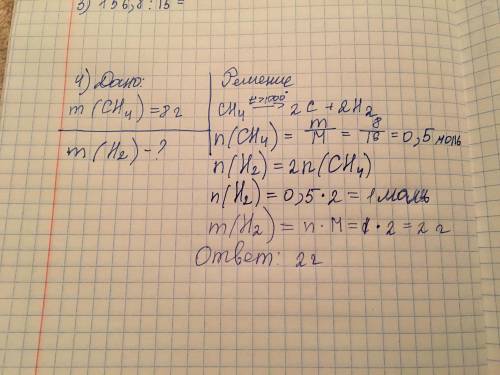 3) 156,8 : 15 =
4) Дано:
m (CH4) = 8 г
m (H2) - ?
Решение
CH4 t>1000° → 2C + 2H2
n(CH4) = m/M = 8/16 = 0,5 моль
n(H2) = 2n(CH4)
n(H2) = 0,5 · 2 = 1 моль
m(H2) = n · M = 1 · 2 = 2 г
Ответ: 2 г